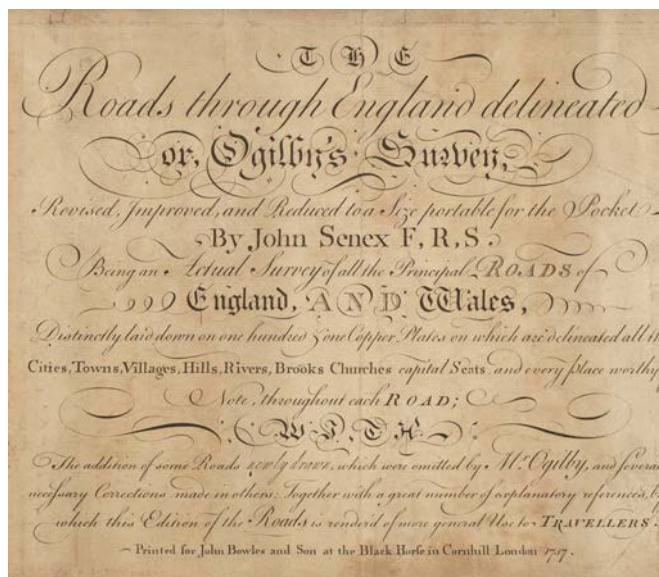 THE
Roads through England delineated
or, Ogilby's Survey,
Revised, Improved, and Reduced to a Size portable for the Pocket
By John Senex F,R,S.
Being an Actual Survey of all the Principal ROADS of
England, AND Wales,
Distinctly laid down on one hundred & one Copper Plates on which are delineated all
Cities, Towns, Villages, Hills, Rivers, Brooks Churches capital Seats, and every place worthy
Note, throughout each ROAD;
WITH
The addition of some Roads newly drawn, which were omitted by Mr Ogilby, and
necessary Corrections made in others: Together with a great number of explanatory references,
which this Edition of the Roads is render'd of more general Use to TRAVELLERS.
Printed for John Bowles and Son at the Black Horse in Cornhill London 1757.